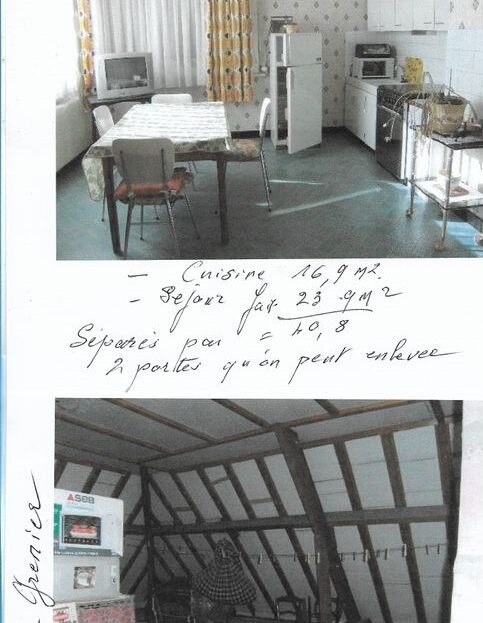 - Cuisine 16,9 m2.
- Séjour fait 23.9 m2
= 40,8
Séparés par
2 portes qu'on peut enlever
SEB
- Grenier